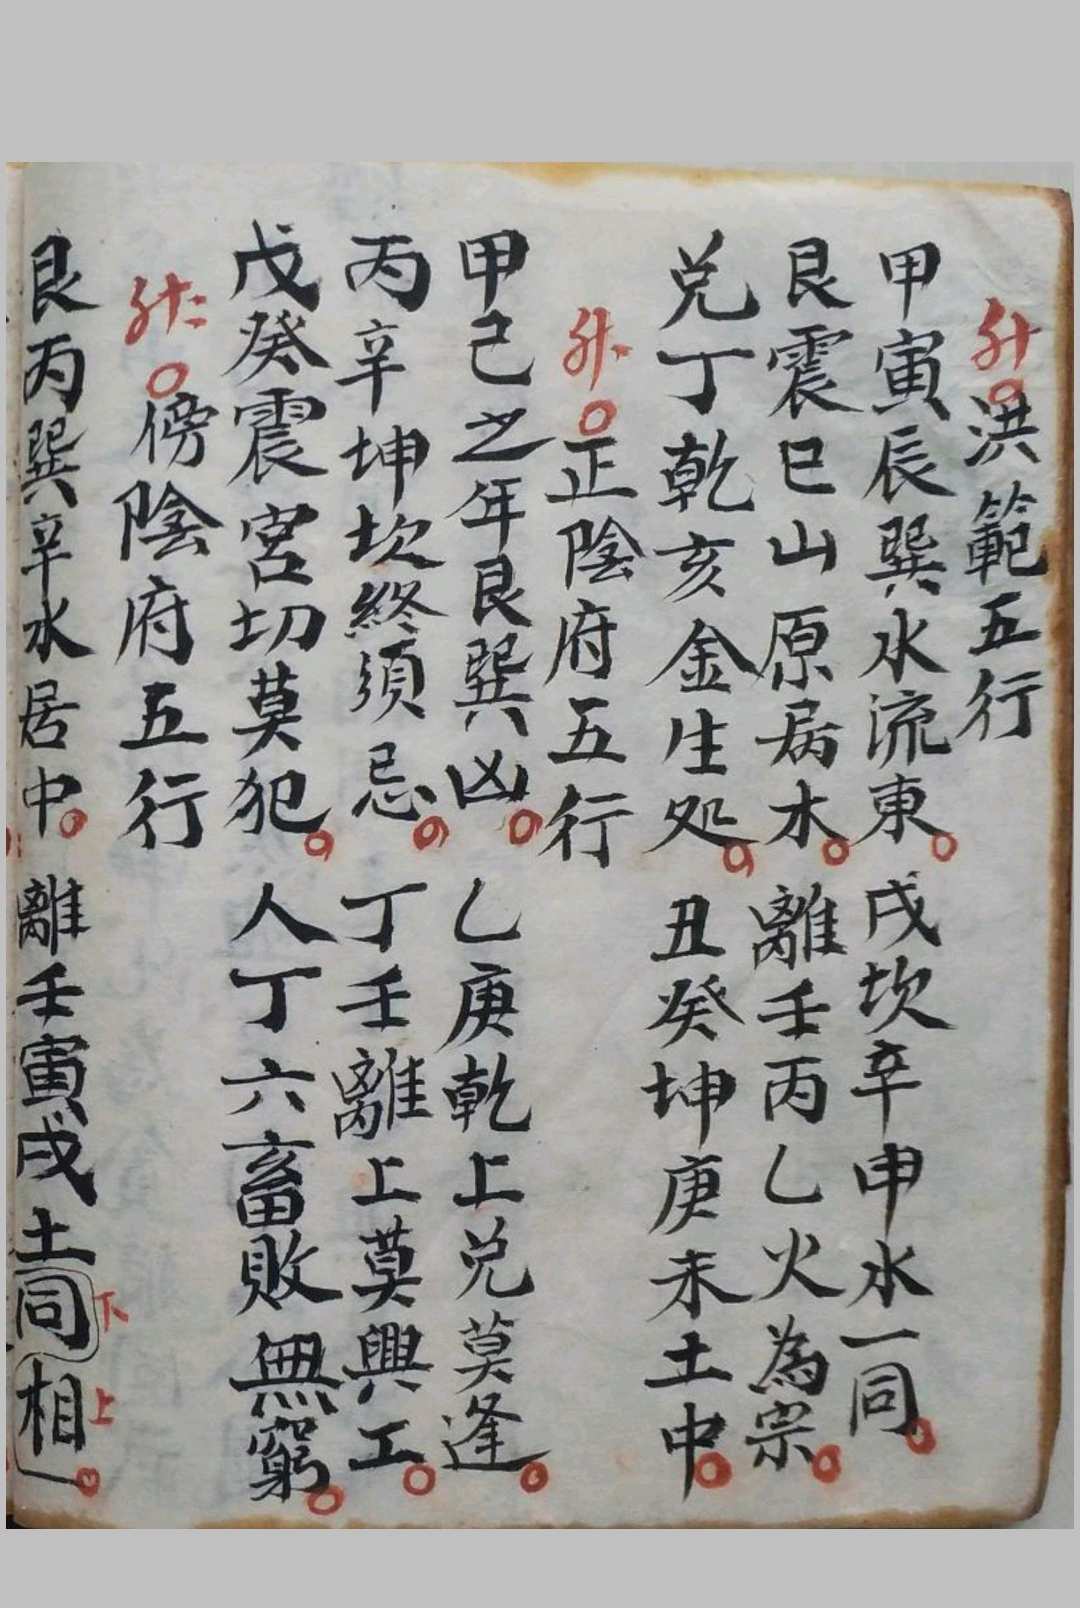 洪範五行
甲寅辰巽水流東。戌坎辛申水一同。
艮震巳山原居木。離壬丙乙火為宗。
兑丁乾亥金生处。丑癸坤庚未土中。
正陰府五行
甲己之年艮巽凶。乙庚乾上兑莫逢。
丙辛坤坎終須忌。丁壬離上莫興工。
戊癸震宮切莫犯。人丁六畜敗無窮。
傍陰府五行
艮丙巽辛水居中。離壬寅戌土同相。
下
上